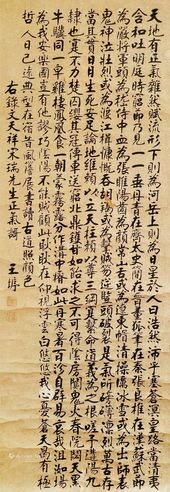 天地有正氣雜然賦流形下則為河岳上則為日星於人曰浩然沛乎塞蒼冥皇路當清夷
含和吐明庭時窮節乃見一一垂丹青在齊太史簡在晉董狐筆在秦張良椎在漢蘇武節
為嚴將軍頭為嵇侍中血為張睢陽齒為顏常山舌或為遼東帽清操厲冰雪或為出師表
鬼神泣壯烈或為渡江楫慷慨吞胡羯或為擊賊笏逆豎頭破裂是氣所磅礴凜烈萬古存
當其貫日月生死安足論地維賴以立天柱賴以尊三綱實繫命道義為之根嗟予遘陽九
隸也實不力楚囚纓其冠傳車送窮北鼎鑊甘如飴求之不可得陰房闃鬼火春院閟天黑
牛驥同一皁雞棲鳳凰食一朝蒙霧露分作溝中瘠如此再寒暑百沴自辟易哀哉沮洳場
為我安樂國豈有他繆巧陰陽不能賊顧此耿耿在仰視浮雲白悠悠我心憂蒼天曷有極
哲人日已遠典型在宿昔風簷展書讀古道照顏色
右錄文天祥宋瑞先生正氣詩 王